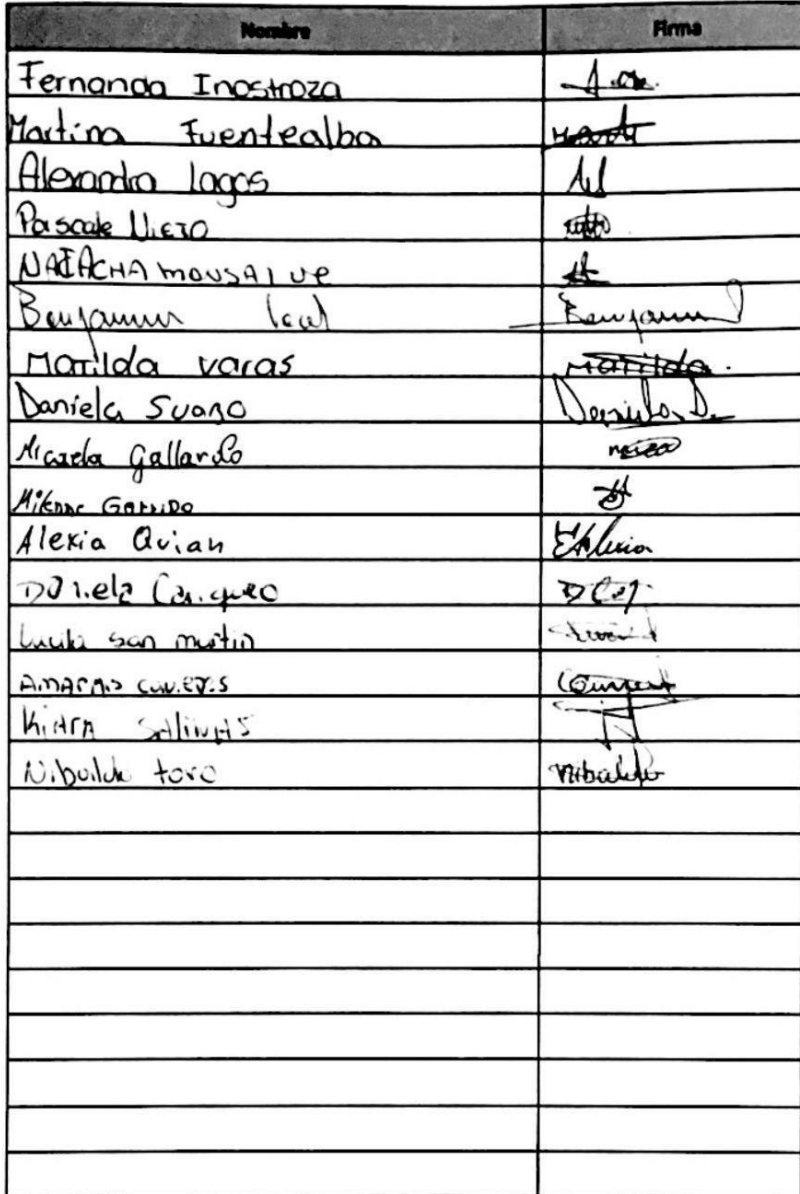 Nombre Firma
Fernanda Inostroza
Martina Fuentealba
Alexandra Lagos
Pascale Nieto
NATACHA monsalve
Benjamin Leal Benjamin
Matilda varas Matilda
Daniela Suazo Daniela
Micaela Gallardo
Milenne Garrido
Alexia Quian Alexia
Daniela
Lucila san martin
Kiara Salinas
Nibaldo toro Nibaldo